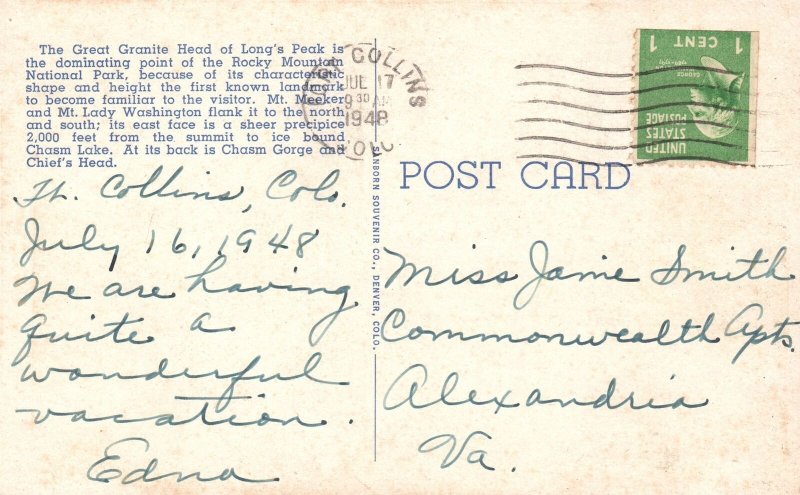 The Great Granite Head of Long's Peak is
the dominating point of the Rocky Mountain
National Park, because of its characteristic
shape and height the first known landmark
to become familiar to the visitor. Mt. Meeker
and Mt. Lady Washington flank it to the north
and south; its east face is a sheer precipice
2,000 feet from the summit to ice bound
Chasm Lake. At its back is Chasm Gorge and
Chief's Head.
Ft. Collins, Colo.
July 16, 1948
We are having
quite a
wonderful
vacation.
Edna
SANBORN SOUVENIR CO., DENVER, COLO.
FORT COLLINS
JUL 17
9 30 AM
1948
COLO
POST CARD
UNITED
STATES
POSTAGE
1 CENT 1
Miss Jamie Smith
Commonwealth Apts.
Alexandria
Va.